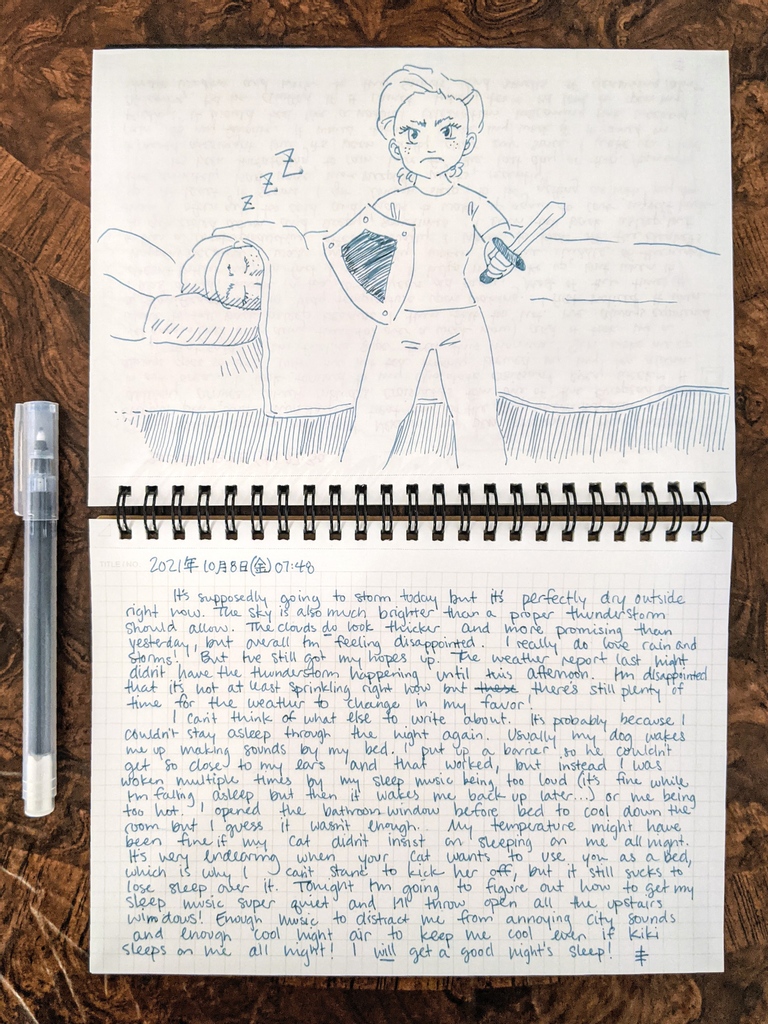 z z z Z
2021年10月8日(金) 07:48
It's supposedly going to storm today but it's perfectly dry outside
right now. The sky is also much brighter than a proper thunderstorm
should allow. The clouds do look thicker and more promising than
yesterday, but overall I'm feeling disappointed. I really do love rain and
storms! But I've still got my hopes up. The weather report last night
didn't have the thunderstorm happening until this afternoon. I'm disappointed
that it's not at least sprinkling right now but these there's still plenty of
time for the weather to change in my favor!
I can't think of what else to write about. It's probably because I
couldn't stay asleep through the night again. Usually my dog wakes
me up making sounds by my bed. I put up a barrier so he couldn't
get so close to my ears and that worked, but instead I was
woken multiple times by my sleep music being too loud (it's fine while
I'm falling asleep but then it wakes me back up later...) or me being
too hot. I opened the bathroom window before bed to cool down the
room but I guess it wasn't enough. My temperature might have
been fine if my cat didn't insist on sleeping on me all night.
It's very endearing when your cat wants to use you as a bed,
which is why I can't stand to kick her off, but it still sucks to
lose sleep over it. Tonight I'm going to figure out how to get my
sleep music super quiet and I'll throw open all the upstairs
windows! Enough music to distract me from annoying city sounds
and enough cool night air to keep me cool even if Kiki
sleeps on me all night! I will get a good night's sleep!